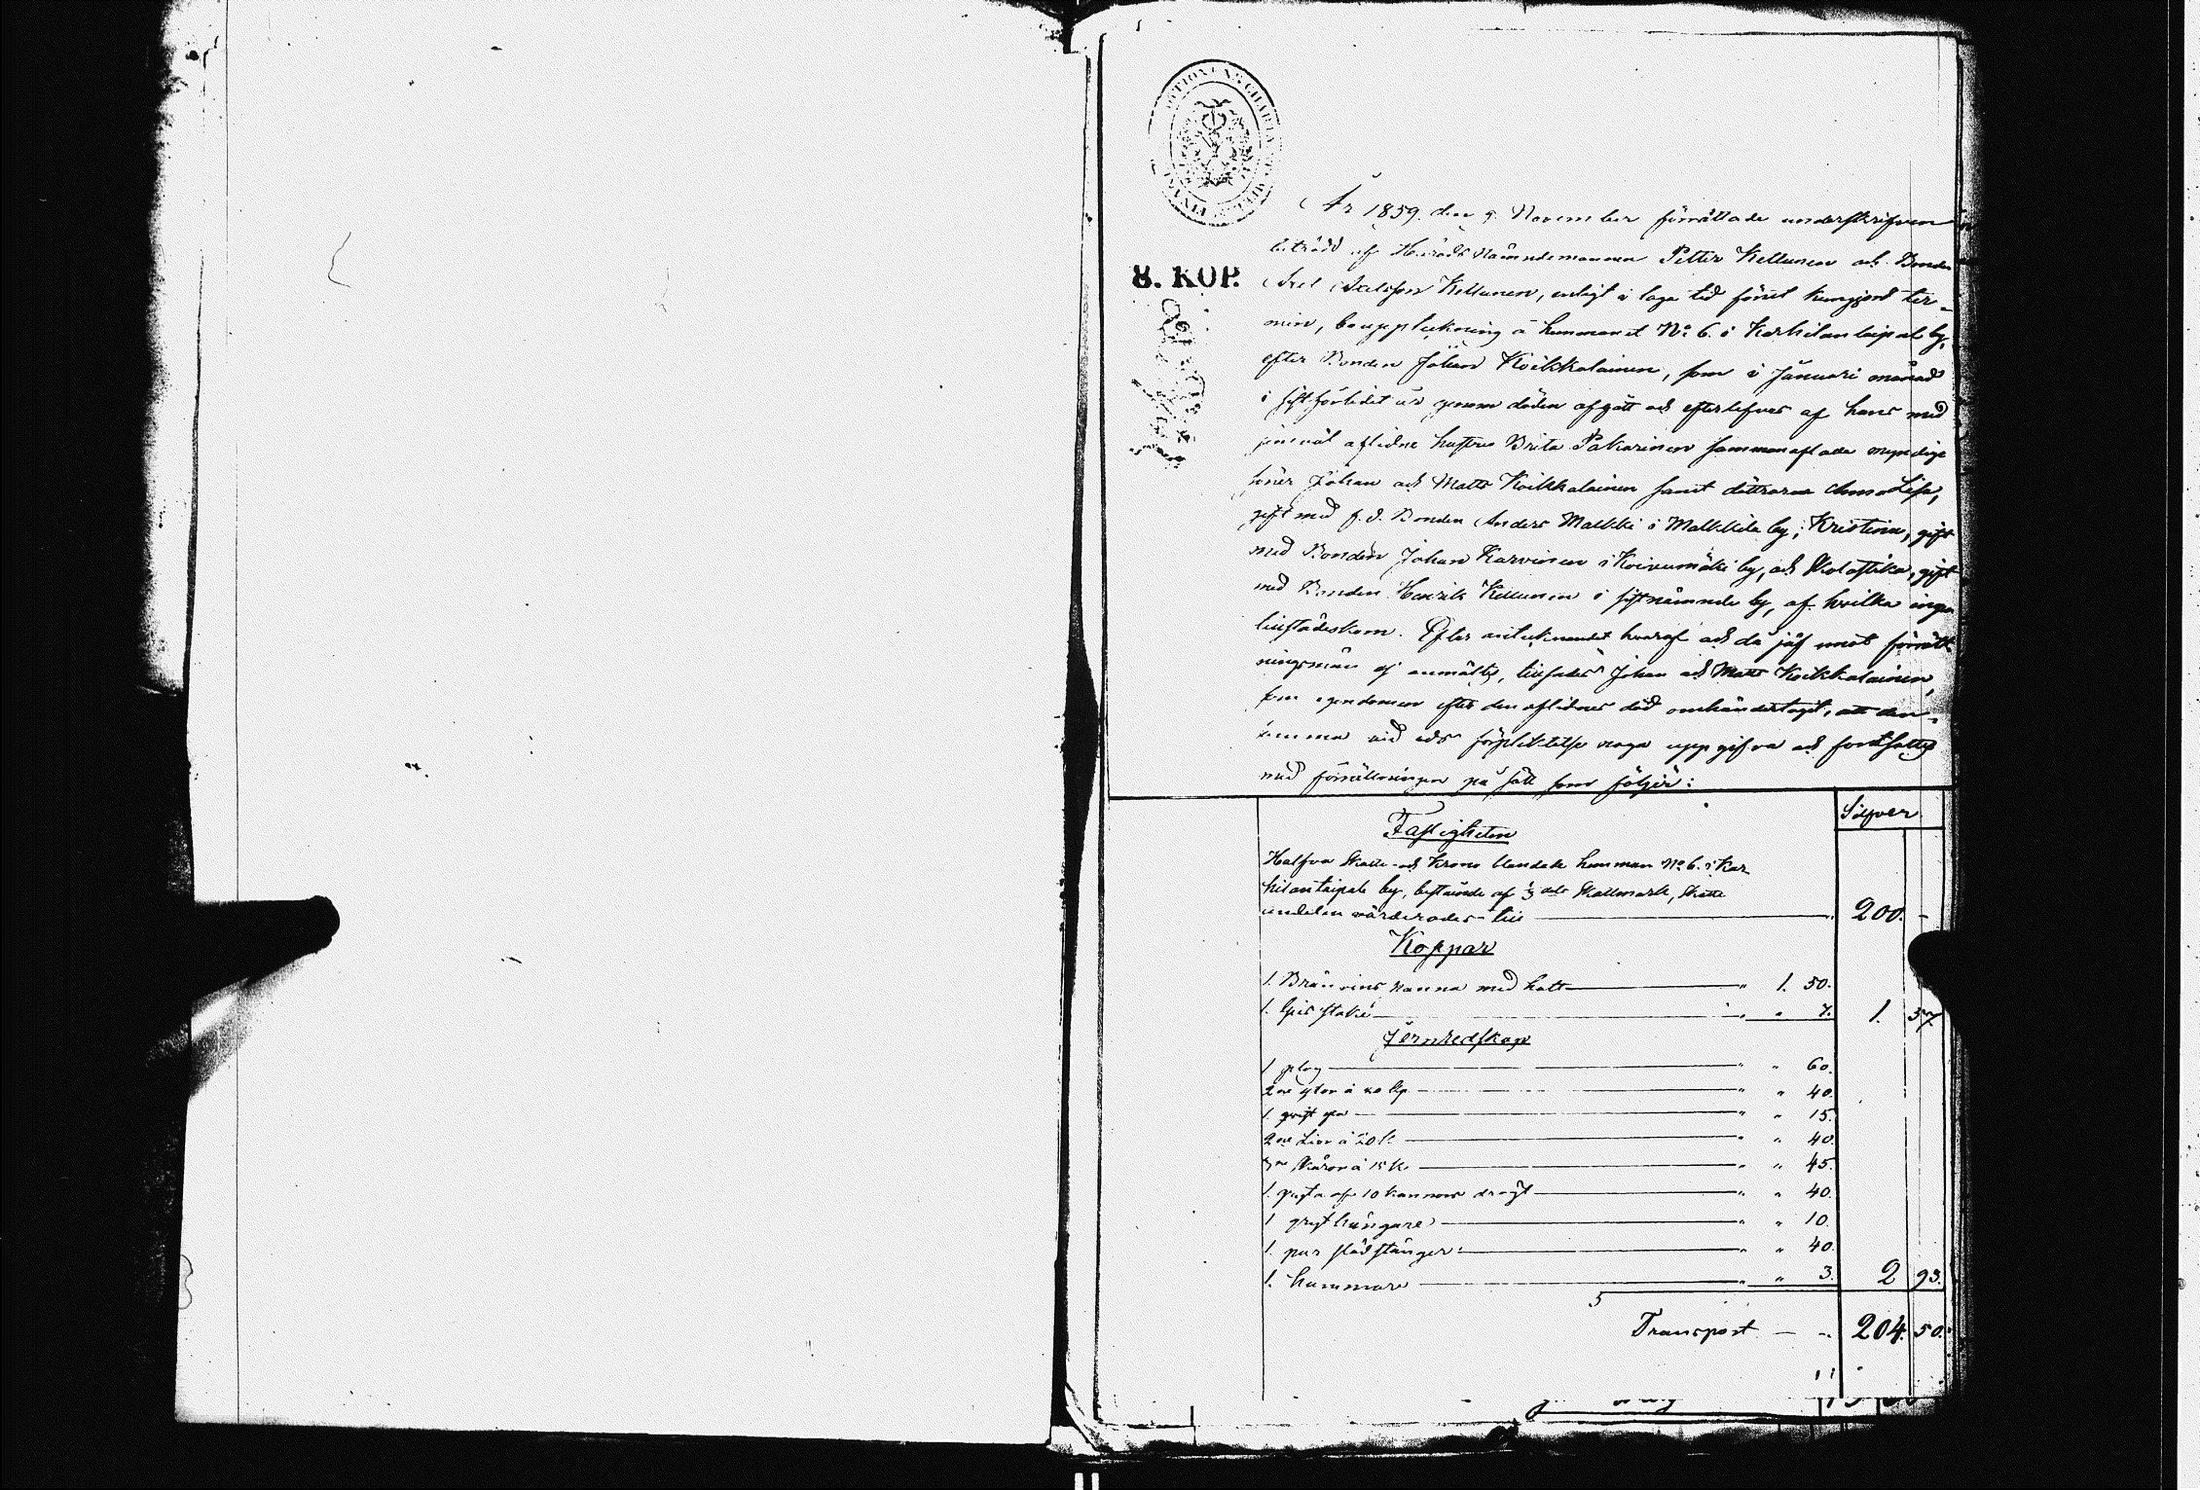 8. KOP.
År 1859. den 9. November förrättade underskrifven
biträdd af Härads Nämndemannen Petter Kellunen och Bonden
Axel Axelsson Kellunen, enligt i laga tid förut kungjord ter-
min, bouppteckning å hemmanet No 6. i Karhilantaipal by,
efter Bonden Johan Koikkalainen, som i Januari månad
i sistförlidet år genom döden afgått och efterlefves af hans med
jemväl aflidne hustru Brita Pakarinen sammanaflade myndige
söner Johan och Matts Koikkalainen samt döttrarne Anna Lisa,
gift med f. d. Bonden Anders Malkki i Malkkila by, Kristina, gift
med Bonden Johan Karvinen i Koivumäki by, och Skolastika, gift
med Bonden Henrik Kellunen i sistnämnde by, af hvilka ingen
tillstädeskom. Efter hvaraf och då jäf emot förrätt-
ningsmän ej anmältes, tillsades Johan och Matts Koikkalainen,
som egendomen efter den aflidnes död omhändertagit, att den-
samma vid eds förpliktelse noga uppgifva och fortsattes
med förrättningen på sätt som följer:
Silfver
Fastigheten
Halfva Skatte- och Krono hemman No 6. i Kar
hilantaipale by, bestående af 1/3 dels Skattmark, Skatte
andelen värderades till 200. -
Koppar
1. Bränvins panna med hatt " 1. 50.
1. ljus stake " " 7. 1. 57.
Jernredskap
1 plog " " 60.
2ne yxor à 20 kp " " 40.
1. " " 15.
2ne Liar à 20 k. " " 40.
3ne Skäror à 15 k. " " 45.
1. gryta af 10 kannors drägt " " 40.
1 grythängare " " 10.
1. par stånger " " 40.
1. hammare " " 3. 2 93.
Transport " 204. 50.